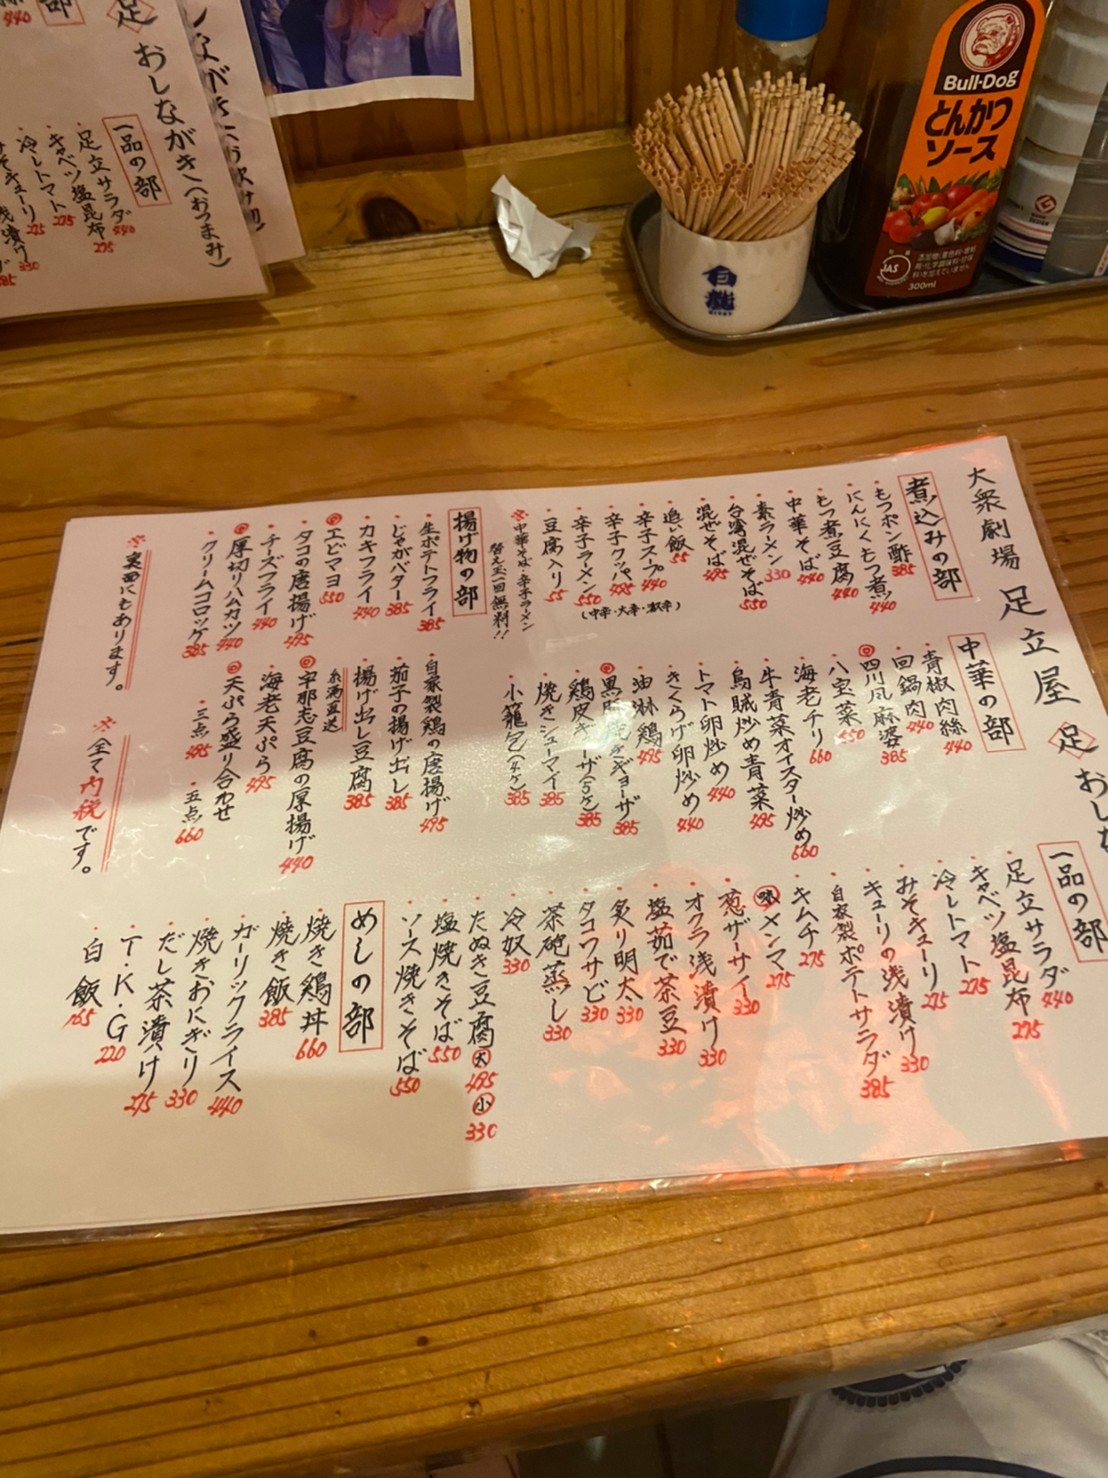 大衆劇場 足立屋 足 おしな
煮込みの部
もつポン酢 385
にんにくもつ煮 440
もつ煮豆腐 440
中華そば 440
素ラーメン 330
台湾混ぜそば 550
混ぜそば 495
追い飯 55
辛子スープ 440
辛子クッパ 495
辛子ラーメン 550
(中辛・大辛・激辛)
豆腐入り 55
※中華そば・辛子ラーメン
替え玉一回無料!!
揚げ物の部
生ポテトフライ 385
じゃがバター 385
カキフライ 440
エビマヨ 550
タコの唐揚げ 495
チーズフライ 440
厚切りハムカツ 440
クリームコロッケ 385
※裏面にもあります。
中華の部
青椒肉絲 440
回鍋肉 440
四川風麻婆 385
八宝菜 550
海老チリ 660
牛青菜オイスター炒め 660
烏賊炒め青菜 495
トマト卵炒め 440
きくらげ卵炒め 440
油淋鶏 495
黒豚焼きギョーザ 385
鶏皮ギョーザ(5ケ) 385
焼きシューマイ 385
小籠包(4ケ) 385
自家製鶏の唐揚げ 495
茄子の揚げ出し 385
揚げ出し豆腐 385
糸満直送
宇那志豆腐の厚揚げ 440
海老天ぷら 495
天ぷら盛り合わせ
三点 495 五点 660
※全て内税です。
一品の部
足立サラダ 440
キャベツ塩昆布 275
冷しトマト 275
みそキューリ 275
キューリの浅漬け 330
自家製ポテトサラダ 385
キムチ 275
味メンマ 275
葱ザーサイ 330
オクラ浅漬け 330
塩茹で茶豆 330
炙り明太 330
タコワサビ 330
茶碗蒸し 330
冷奴 330
たぬき豆腐 大 495 小 330
塩焼きそば 550
ソース焼きそば 550
めしの部
焼き鶏丼 660
焼き飯 385
ガーリックライス 440
焼きおにぎり 330
だし茶漬け 275
T・K・G 220
白飯 165
足 おしながき(おつまみ)
一品の部
足立サラダ 440
キャベツ塩昆布 275
冷しトマト 275
みそキューリ 275
浅漬け 330
部
440
Bull-Dog
とんかつ
ソース
JAS
300ml
白龍